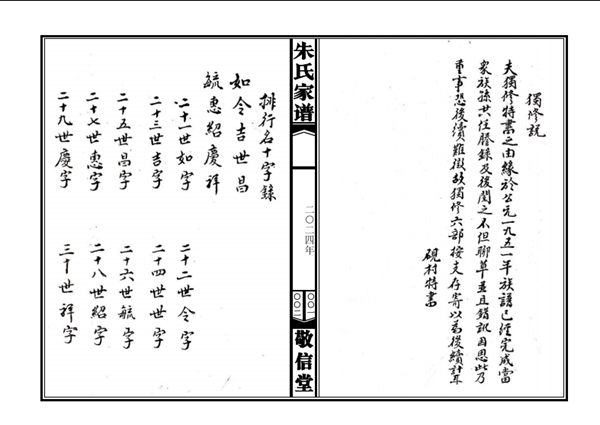 獨修説
夫獨修特書之由緣於公元一九五一年族譜已經完成當
家族孫共任謄錄及後閱之不但聊草並且錯訛因思此乃
重事恐後續難徵故獨修六部按支存寄以為後續計耳
硯村特書
朱氏家谱
二〇二四年
〇〇一
〇〇二
敬信堂
排行名十字錄
如令吉世昌
毓惠紹慶祥
二十一世如字 二十二世令字
二十三世吉字 二十四世世字
二十五世昌字 二十六世毓字
二十七世惠字 二十八世紹字
二十九世慶字 三十世祥字